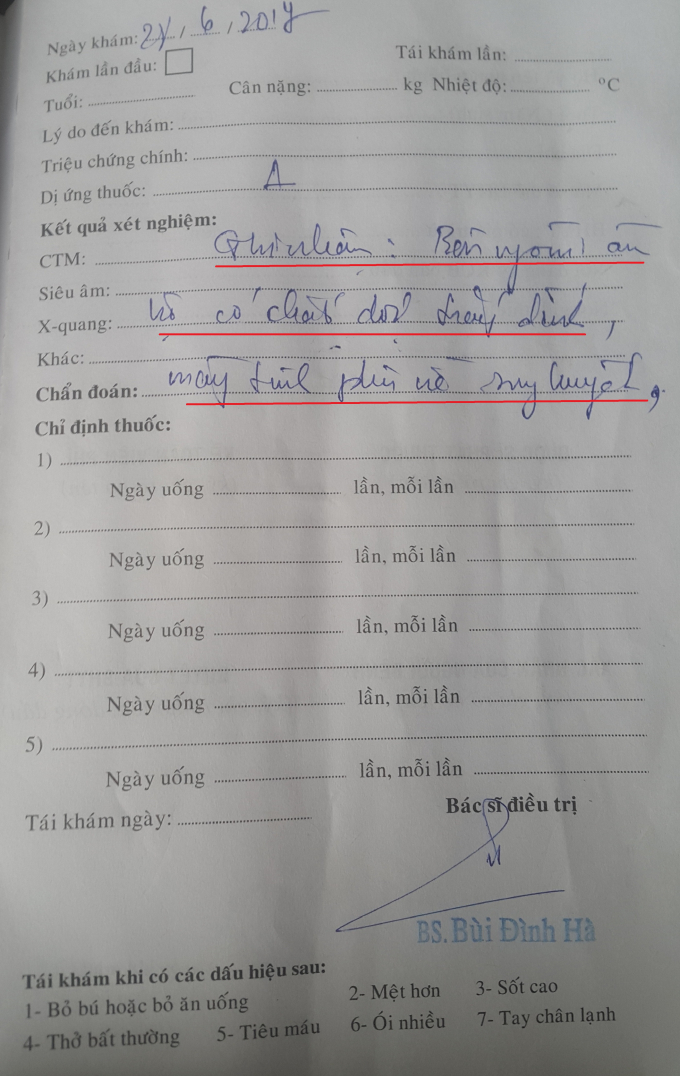 Ngày khám: 2, 6, 2017
Khám lần đầu:
Tái khám lần:
Tuổi:
Cân nặng: kg Nhiệt độ: °C
Lý do đến khám:
Triệu chứng chính:
Dị ứng thuốc:
Kết quả xét nghiệm:
CTM: Ghi nhận: Bên ngoài ấn
Siêu âm:
X-quang: có chất dịch
Khác:
Chẩn đoán: máy tính phù nề suy huyết,
Chỉ định thuốc:
1)
Ngày uống lần, mỗi lần
2)
Ngày uống lần, mỗi lần
3)
Ngày uống lần, mỗi lần
4)
Ngày uống lần, mỗi lần
5)
Ngày uống lần, mỗi lần
Tái khám ngày:
Bác sĩ điều trị
BS. Bùi Đình Hà
Tái khám khi có các dấu hiệu sau:
1- Bỏ bú hoặc bỏ ăn uống 2- Mệt hơn 3- Sốt cao
4- Thở bất thường 5- Tiêu máu 6- Ói nhiều 7- Tay chân lạnh